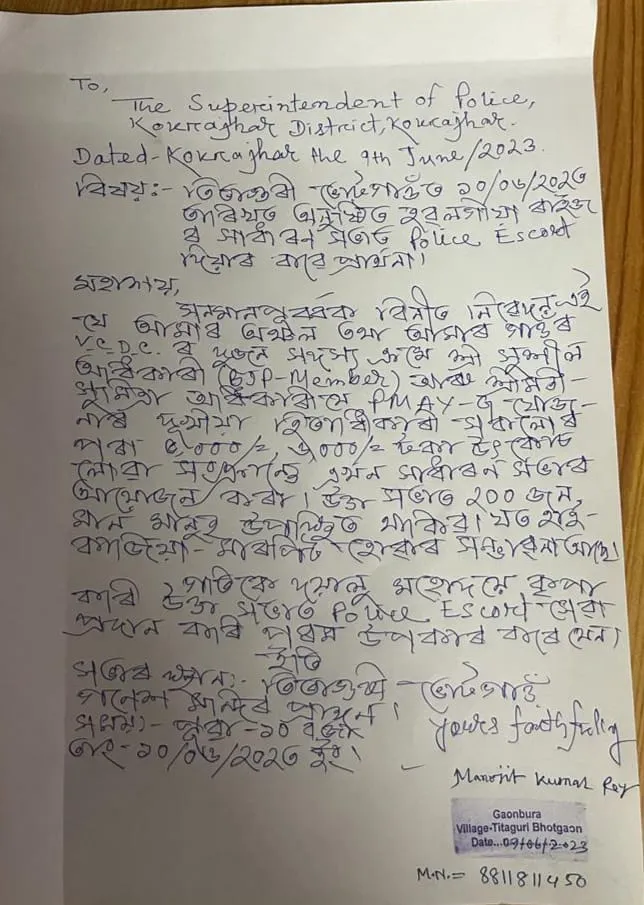 To,
The Superintendent of Police,
Kokrajhar District, Kokrajhar.
Dated- Kokrajhar the 9th June/2023.
বিষয়:- তিতাগুৰী ভোটগাওঁত ১০/০৬/২০২৩
তাৰিখত অনুষ্ঠিত ৰাইজ
ৰ সাধাৰন সভাত Police Escord
দিয়াৰ বাবে প্ৰাৰ্থনা।
মহাশয়,
সন্মানপুৰ্বক বিনীত নিবেদন এই
যে আমাৰ অঞ্চল তথা আমাৰ গাওঁৰ
V.C.D.C. ৰ দুজন সদস্য ক্ৰমে শ্ৰী সুশীল
অধিকাৰী (BJP-Member) আৰু শ্ৰীমতী
সুমিত্ৰা অধিকাৰীয়ে PMAY-G যোজ-
নাৰ দুখীয়া হিতাধিকাৰী সকলোৰ
পৰা ৫০০০/=, ৬০০০/= টকা উৎকোচ
লোৱা সংক্ৰান্তে এখন সাধাৰন সভাৰ
আয়োজন কৰা। উক্ত সভাত ২০০ জন
মান মানুহ উপস্থিত থাকিব। য'ত হাই-
কাজিয়া- মাৰপিট হোৱাৰ সম্ভাৱনা আছে।
গতিকে দয়ালু মহোদয়ে কৃপা
কৰি উক্ত সভাত Police Escord সেৱা
প্ৰদান কৰি পৰম উপকাৰ কৰে যেন।
ইতি
সভাৰ স্থান:- তিতাগুৰী ভোটগাওঁ
গনেশ মন্দিৰ প্ৰাঙ্গন।
সময়:- পুৱা -১০ বজা
তাং- ১০/০৬/২০২৩ ইং।
Yours faithfully
Manojit Kumar Rey
Gaonbura
Village-Titaguri Bhotgaon
Date...09/06/2023
M.N.= 8811811450